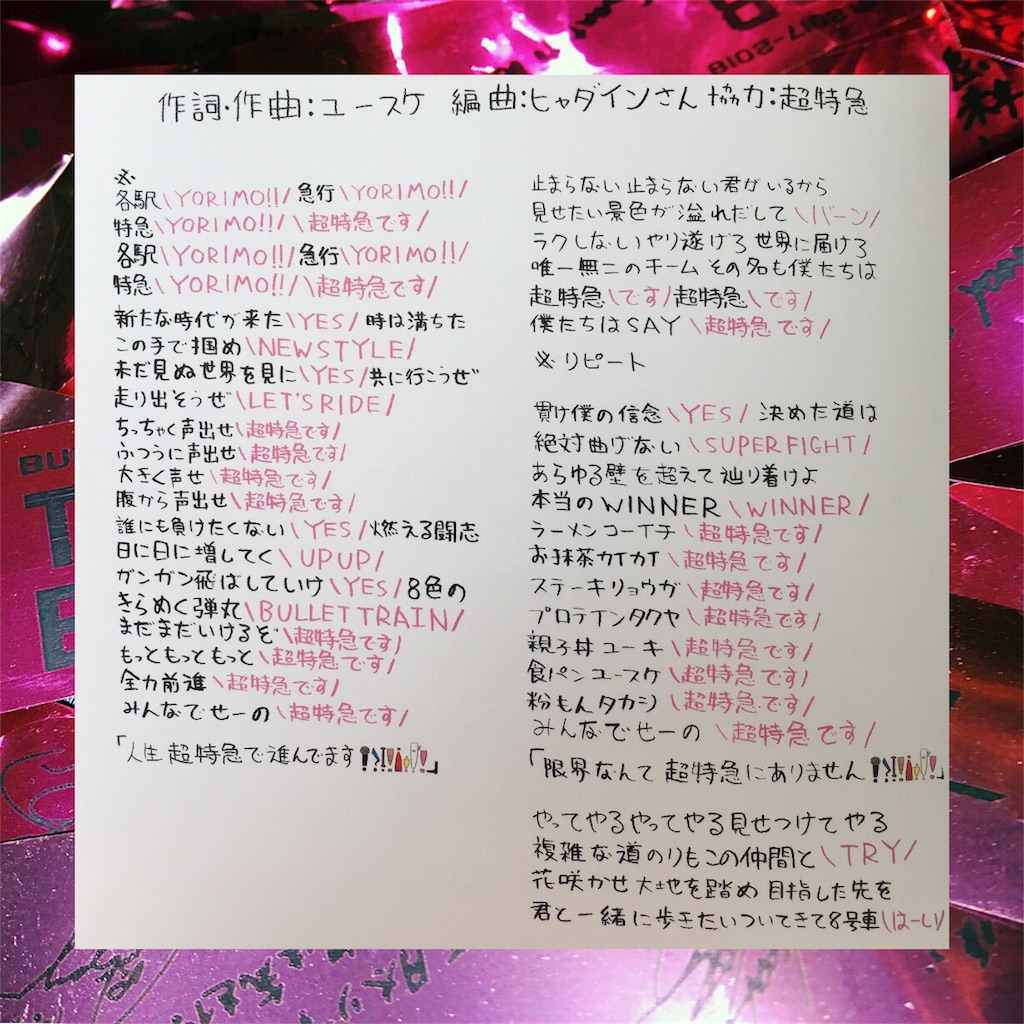 作詞・作曲:ユースケ 編曲:ヒャダインさん 協力:超特急
※
各駅\YORIMO!!/ 急行\YORIMO!!/
特急\YORIMO!!/ \超特急です/
各駅\YORIMO!!/ 急行\YORIMO!!/
特急\YORIMO!!/ \超特急です/
新たな時代が来た\YES/ 時は満ちた
この手で掴め\NEWSTYLE/
未だ見ぬ世界を見に\YES/共に行こうぜ
走り出そうぜ\LET'S RIDE/
ちっちゃく声出せ\超特急です/
ふつうに声出せ\超特急です/
大きく声せ\超特急です/
腹から声出せ\超特急です/
誰にも負けたくない\YES/燃える闘志
日に日に増してく\UPUP/
ガンガン飛ばしていけ\YES/8色の
きらめく弾丸\BULLET TRAIN/
まだまだいけるぞ\超特急です/
もっともっともっと\超特急です/
全力前進\超特急です/
みんなでせーの\超特急です/
「人生 超特急で進んでます」
止まらない 止まらない 君がいるから
見せたい景色が溢れだして\バーン/
ラクしない やり遂げろ 世界に届けろ
唯一無二のチーム その名も僕たちは
超特急\です/超特急\です/
僕たちはSAY \超特急です/
※リピート
貫け僕の信念\YES/ 決めた道は
絶対曲げない\SUPER FIGHT/
あらゆる壁を超えて辿り着けよ
本当のWINNER\WINNER/
ラーメンコーイチ\超特急です/
お抹茶カイカイ\超特急です/
ステーキリョウガ\超特急です/
プロテインタクヤ\超特急です/
親子丼ユーキ\超特急です/
食パンユースケ\超特急です/
粉もんタカシ\超特急です/
みんなでせーの\超特急です/
「限界なんて 超特急にありません」
やってやるやってやる見せつけてやる
複雑な道のりもこの仲間と\TRY/
花咲かせ 大地を踏め 目指した先を
君と一緒に歩きたいついてきて8号車\はーい/